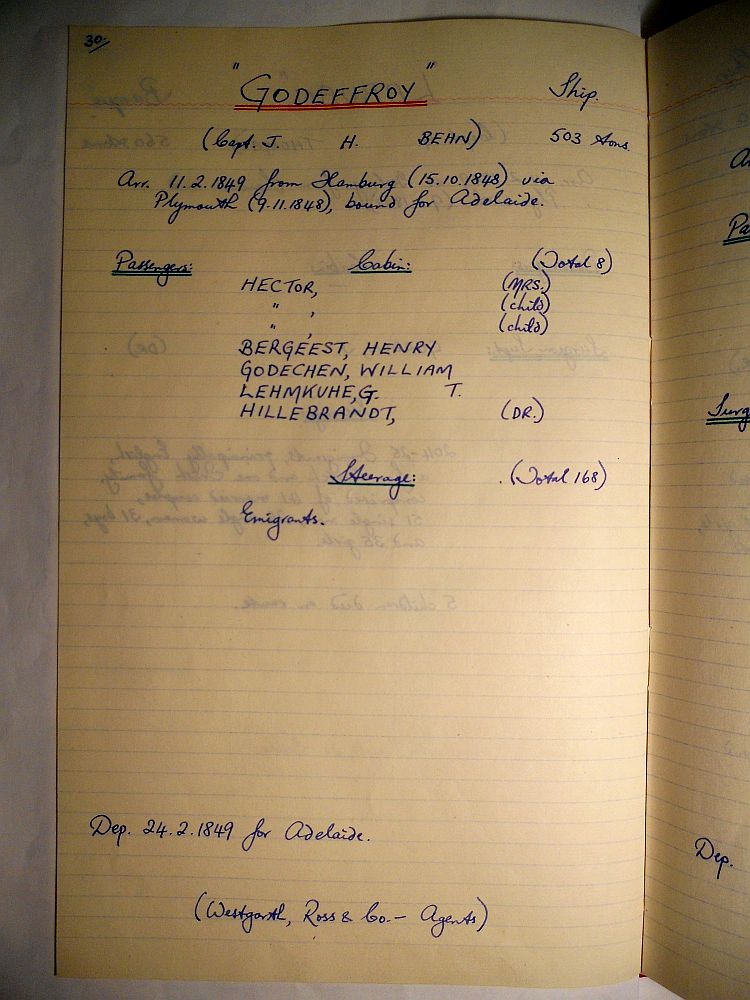 30.
"GODEFFROY" Ship.
(Capt. J. H. BEHN) 503 tons.
Arr. 11.2.1849 from Hamburg (15.10.1848) via
Plymouth (9.11.1848), bound for Adelaide.
Passengers: Cabin: (Total 8)
HECTOR, (MRS.)
" , (child)
" , (child)
BERGEEST, HENRY
GODECHEN, WILLIAM
LEHMKUHE, G. T.
HILLEBRANDT, (DR.)
Steerage: (Total 168)
Emigrants.
Dep. 24.2.1849 for Adelaide.
(Westgarth, Ross & Co. - Agents)
Pa
Surg
Dep.